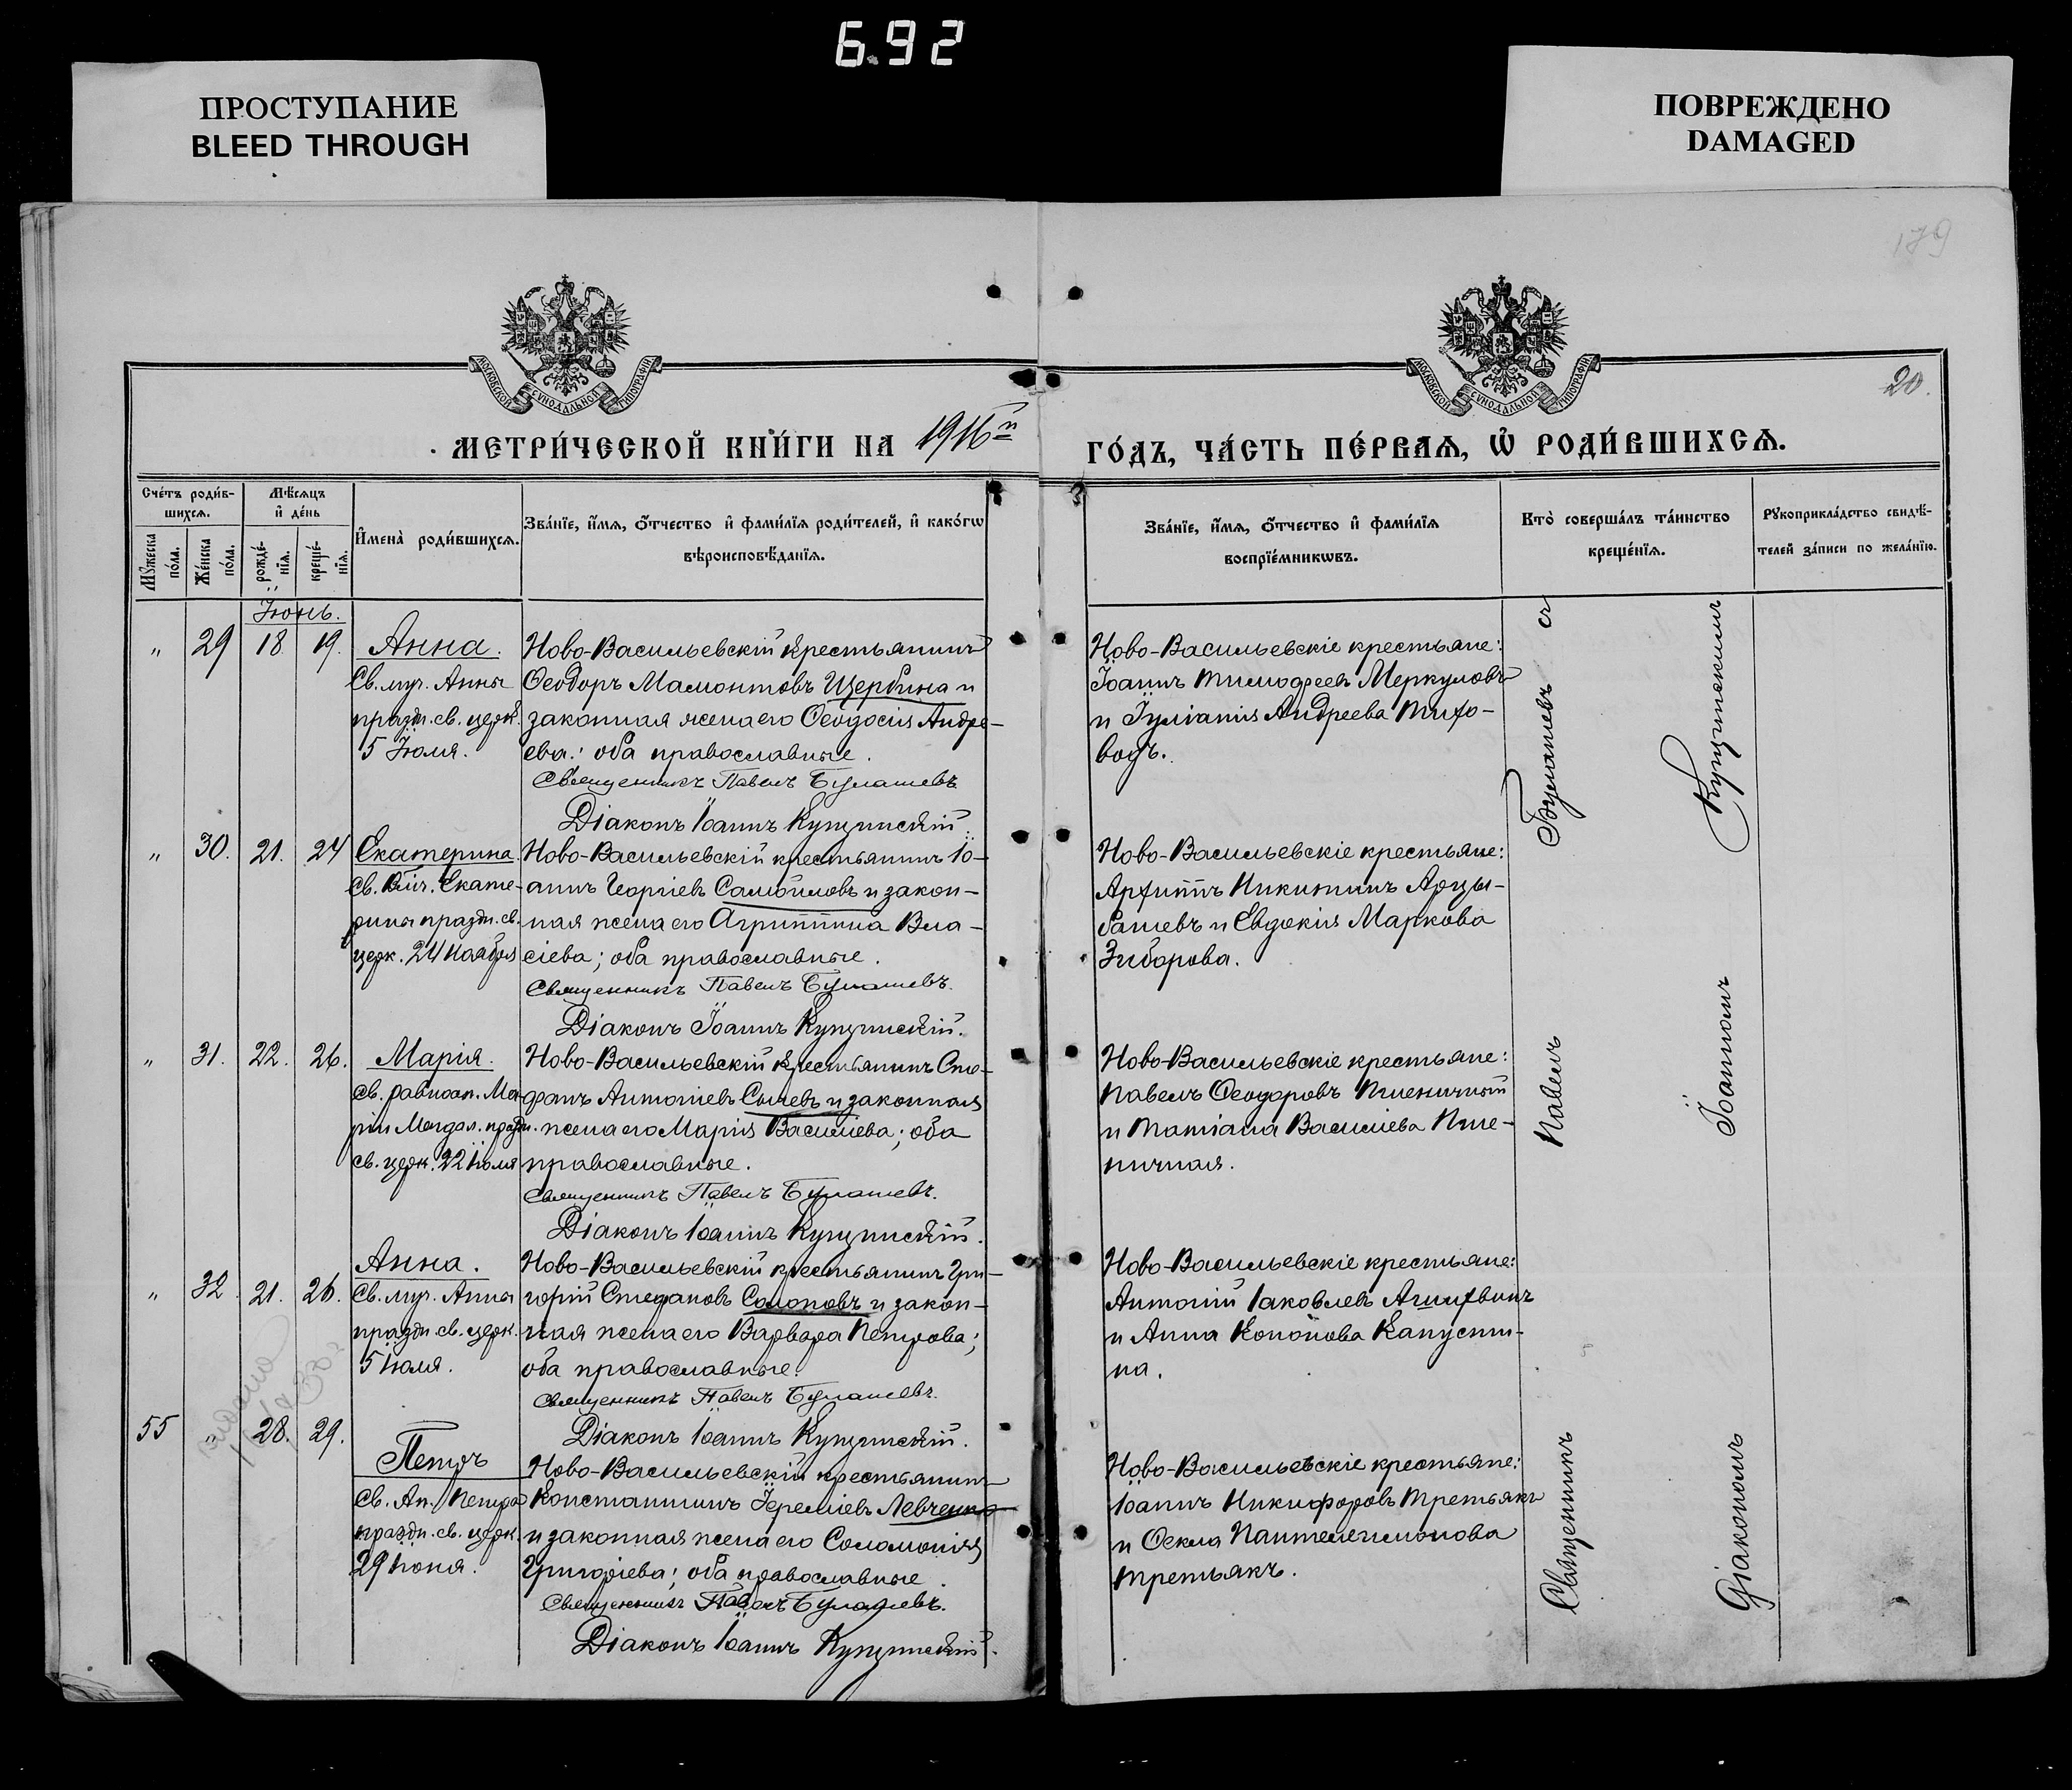 6.92
ПРОСТУПАНИЕ
BLEED THROUGH
ПОВРЕЖДЕНО
DAMAGED
179
МОСКОВСКОЙ СѴНОДАЛЬНОЙ ТИПОГРАФІИ
МОСКОВСКОЙ СѴНОДАЛЬНОЙ ТИПОГРАФІИ
20.
МЕТРИ́ЧЕСКОЙ КНИ́ГИ НА 1916й
ГО́ДЪ, ЧА́СТЬ ПЕ́РВАѦ, Ѽ РОДИ́ВШИХСѦ.
Сче́тъ роди́в-
шихсѧ.
Мꙋ́жеска по́ла.
Же́нска по́ла.
Мѣ́сѧцъ
и҆ де́нь
рожде́-
нїѧ.
креще́-
нїѧ.
И҆мена̀ роди́вшихсѧ.
Зва́нїе, и҆́мѧ, ѻ҆́тчество и҆ фами́лїѧ роди́телей, и҆ како́гѡ
вѣроисповѣ́данїѧ.
Зва́нїе, и҆́мѧ, ѻ҆́тчество и҆ фами́лїѧ
воспрїе́мникѡвъ.
Кто̀ соверша́лъ та́инство
креще́нїѧ.
Рꙋкоприкла́дство свидѣ́-
телей за́писи по жела́нїю.
Іюнь.
„ 29 18. 19. Анна.
Св. муч. Анны
праздн. св. церк.
5 Іюля.
Ново-Васильевскій крестьянинъ
Ѳеодоръ Мамонтовъ Щербина и
законная жена его Ѳеодосія Андре-
ева: оба православные.
Священникъ Павелъ Булашевъ
Діаконъ Іоаннъ Купчинскій.
Ново-Васильевскіе крестьяне:
Іоаннъ Тимофеевъ Меркуловъ
и Іуліанія Андреева
„ 30. 21. 24 Екатерина.
Св. Влмч. Екате-
рины праздн. св.
церк. 24 Ноября
Ново-Васильевскій крестьянинъ Іо-
аннъ Георгіевъ Самойловъ и закон-
ная жена его Агриппина Вла-
сіева; оба православные.
Священникъ Павелъ Булашевъ.
Діаконъ Іоаннъ Купчинскій.
Ново-Васильевскіе крестьяне:
Архиппъ Никитинъ Арцы-
башевъ и Евдокія Маркова
Зиборова.
„ 31. 22. 26. Марія.
Св. равноап. Ма-
ріи Магдал. праздн.
св. церк. 22 Іюля
Ново-Васильевскій крестьянинъ Сте-
фанъ Антоніевъ Сычевъ и законная
жена его Марія Василіева; оба
православные.
Священникъ Павелъ Булашевъ.
Діаконъ Іоаннъ Купчинскій.
Ново-Васильевскіе крестьяне:
Павелъ Ѳеодоровъ Пшеничный
и Татіана Василіева Пше-
ничная.
„ 32. 21. 26. Анна.
Св. муч. Анны
праздн. св. церк.
5 Іюля.
Ново-Васильевскій крестьянинъ Гри-
горій Стефановъ Солоповъ и закон-
ная жена его Варвара Петрова;
оба православные.
Священникъ Павелъ Булашевъ.
Діаконъ Іоаннъ Купчинскій.
Ново-Васильевскіе крестьяне:
Антоній Іаковлевъ
и Анна Кононова Капусти-
на.
55 „ 28. 29. Петръ
Св. Ап. Петра
праздн. св. церк.
29 Іюня.
Ново-Васильевскій крестьянинъ
Константинъ Іереміевъ Левченко
и законная жена его Соломонія
Григоріева; оба православные.
Священникъ Павелъ Булашевъ.
Діаконъ Іоаннъ Купчинскій.
Ново-Васильевскіе крестьяне:
Іоаннъ Никифоровъ Третьякъ
и Ѳекла Пантелеимонова
Третьякъ.
Священникъ Павелъ Булашевъ съ
Діакономъ Іоанномъ Купчинскимъ